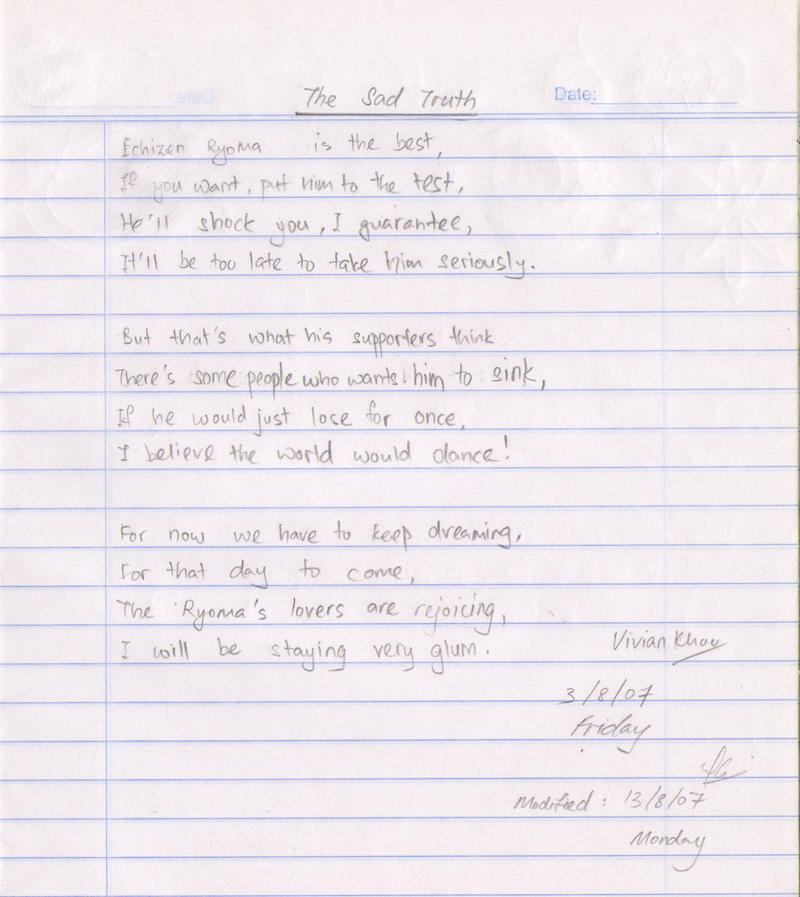 The Sad Truth
Date:
Echizen Ryoma is the best,
If you want, put him to the test,
He'll shock you, I guarantee,
It'll be too late to take him seriously.
But that's what his supporters think
There's some people who wants him to sink,
If he would just lose for once,
I believe the world would dance!
For now we have to keep dreaming,
For that day to come,
The Ryoma's lovers are rejoicing,
I will be staying very glum.
Vivian Khoo
3/8/07
Friday
Modified: 13/8/07
Monday